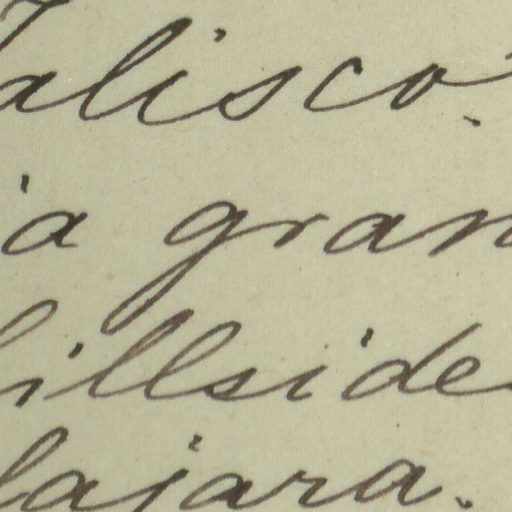 Jalisco.
ia gran
hillside
lajara.